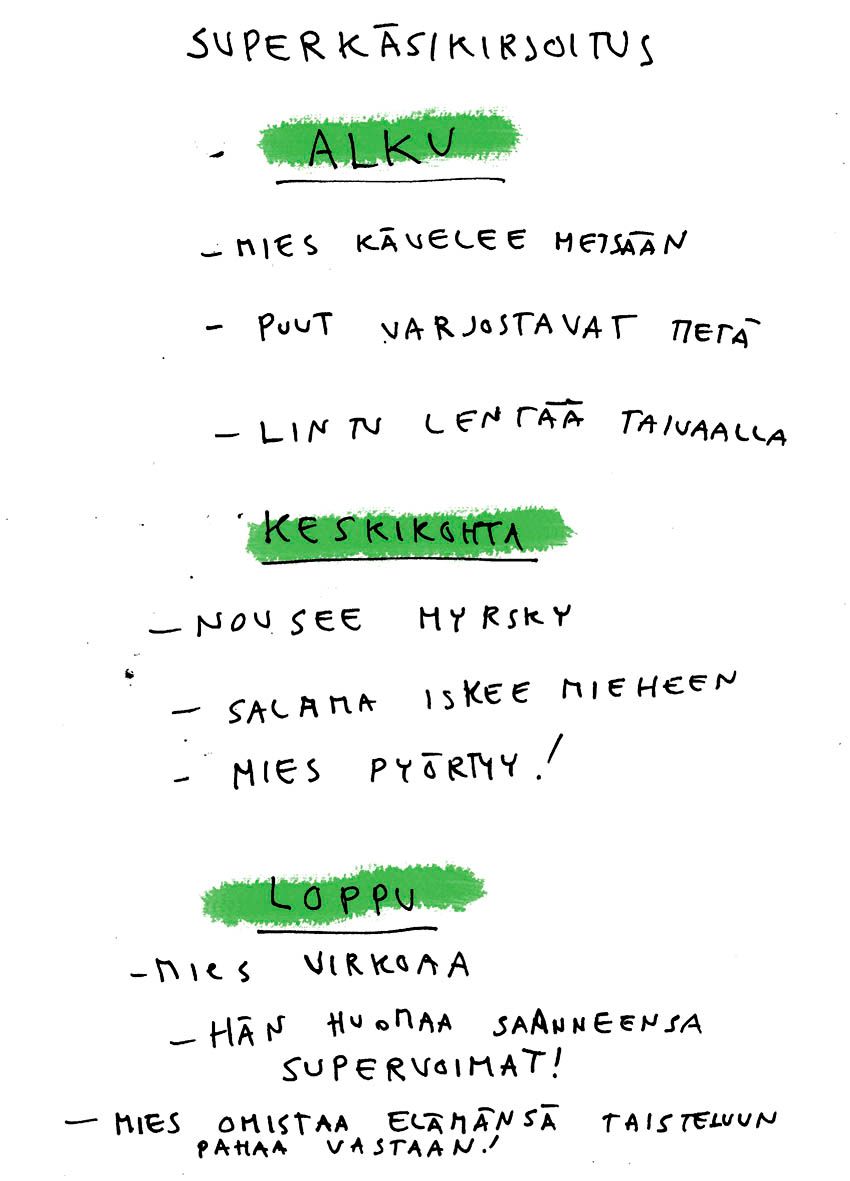 SUPERKÄSIKIRJOITUS
- ALKU
- MIES KÄVELEE METSÄÄN
- PUUT VARJOSTAVAT METÄ
- LINTU LENTÄÄ TAIVAALLA
KESKIKOHTA
- NOUSEE MYRSKY
- SALAMA ISKEE MIEHEEN
- MIES PYÖRTYY!
LOPPU
- MIES VIRKOAA
- HÄN HUOMAA SAANNEENSA
SUPERVOIMAT!
- MIES OMISTAA ELÄMÄNSÄ TAISTELUUN
PAHAA VASTAAN!